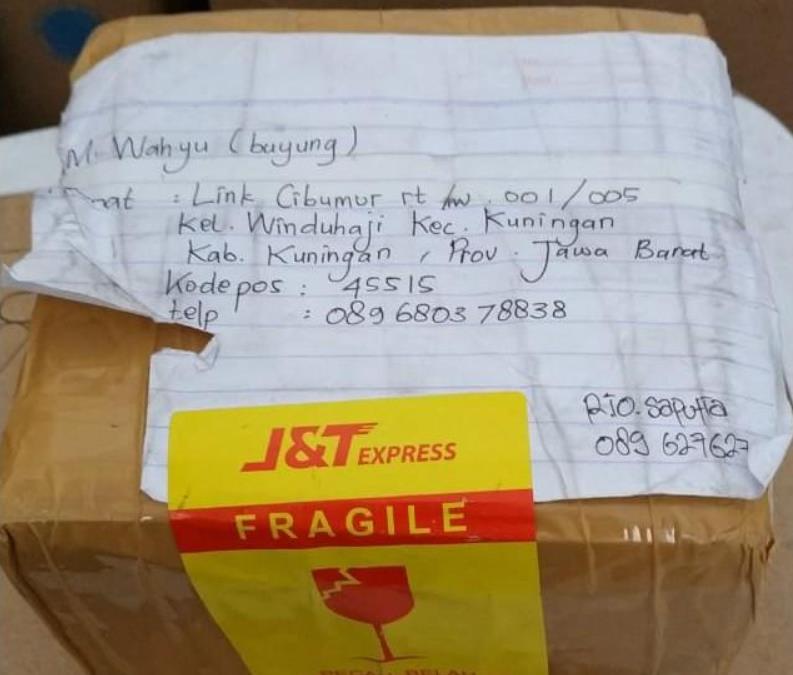 M. Wahyu (buyung)
: Link Cibumur rt /rw . 001/005
Kel. Winduhaji Kec. Kuningan
Kab. Kuningan , Prov . Jawa Barat
Kode pos : 45515
telp : 089 680378838
RIO. Saputra
089 627627
J&T EXPRESS
FRAGILE